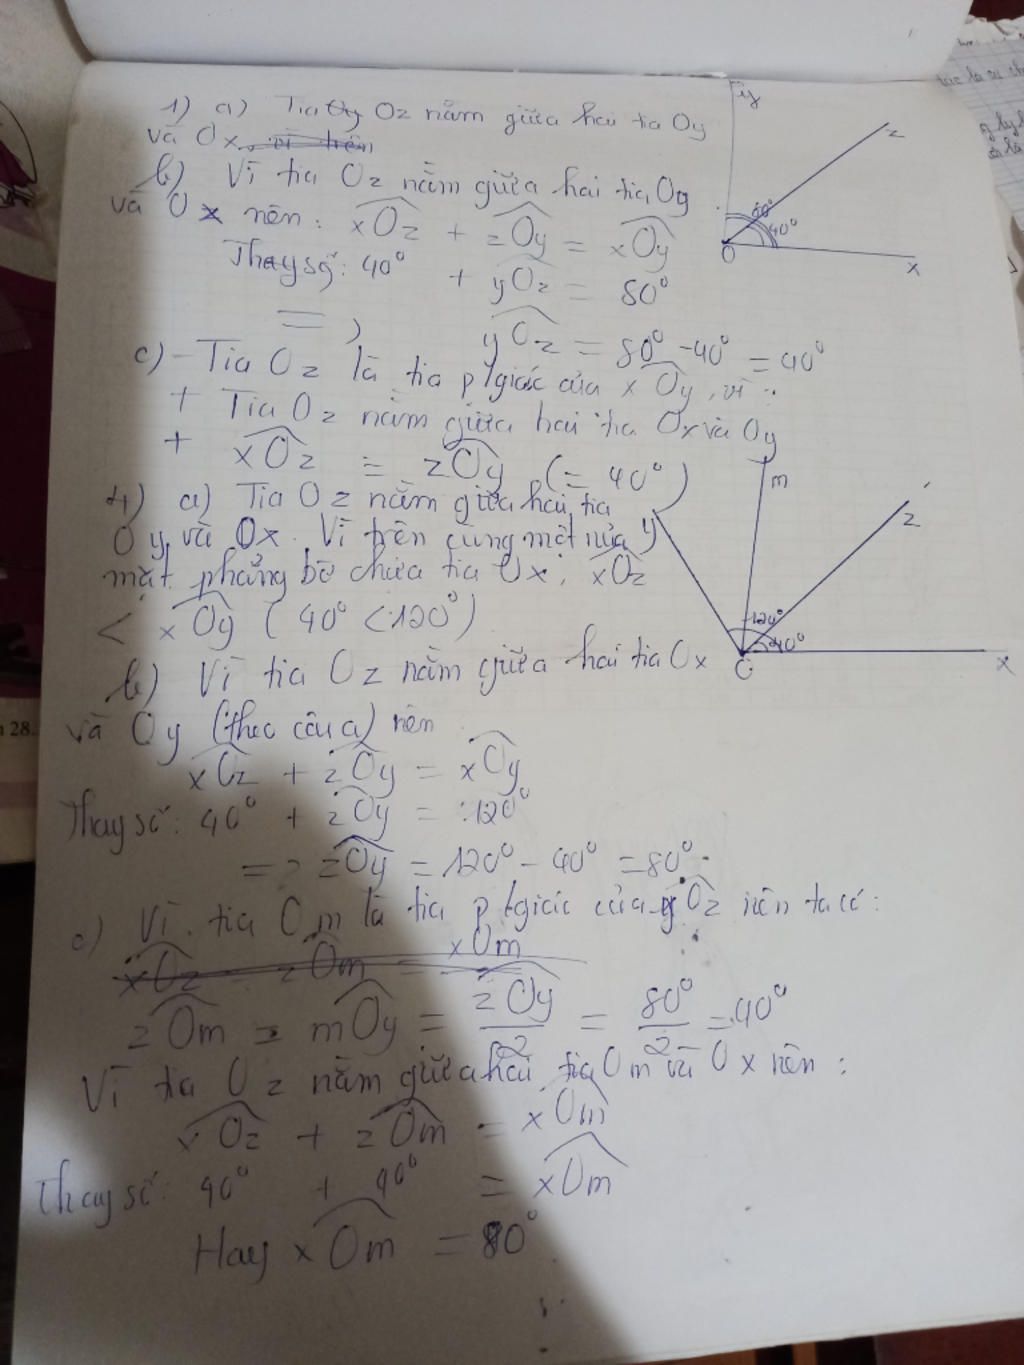 1) a) Tia Oz nằm giữa hai tia Oy
và Ox. vì trên
b) Vì tia Oz nằm giữa hai tia Oy
và Ox nên: xOz + zOy = xOy
Thay số: 40° + yOz = 80°
=> yOz = 80° - 40° = 40°
c) - Tia Oz là tia p/giác của xOy, vì:
+ Tia Oz nằm giữa hai tia Ox và Oy
+ xOz = zOy (= 40°)
y
z
80°
40°
O
x
4) a) Tia Oz nằm giữa hai tia
Oy và Ox. Vì trên cùng một nửa
mặt phẳng bờ chứa tia Ox, xOz
< xOy (40° < 120°)
b) Vì tia Oz nằm giữa hai tia Ox
và Oy (theo câu a) nên
xOz + zOy = xOy
Thay số: 40° + zOy = 120°
=> zOy = 120° - 40° = 80°.
y
m
z
120°
40°
O
x
c) Vì tia Om là tia p/giác của yOz nên ta có:
xOz zOm = xOm
zOm = mOy = zOy/2 = 80°/2 = 40°
Vì tia Oz nằm giữa hai tia Om và Ox nên:
xOz + zOm = xOm
Thay số: 40° + 40° = xOm
Hay xOm = 80°
28.